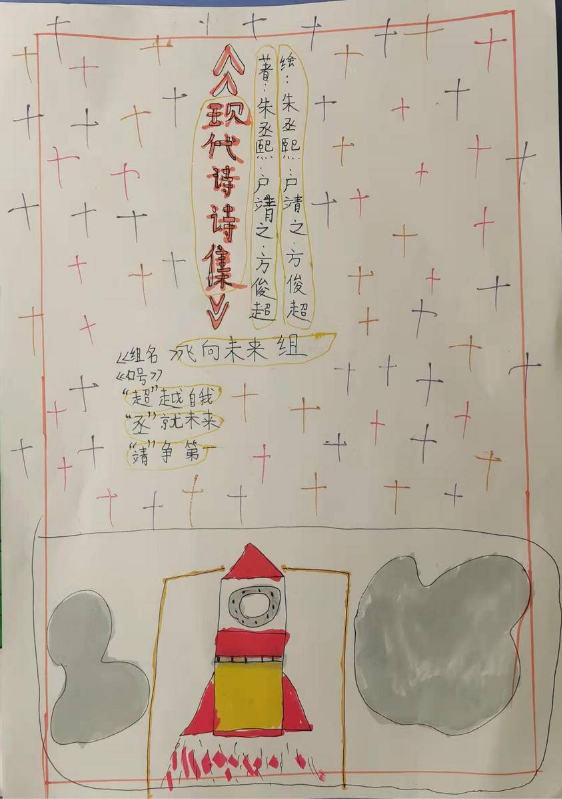 《现代诗诗集》
著：朱丞熙·户靖之·方俊超
绘：朱丞熙·户靖之·方俊超
《组名》飞向未来组
《口号》
“超”越自我
“丞”就未来
“靖”争第一